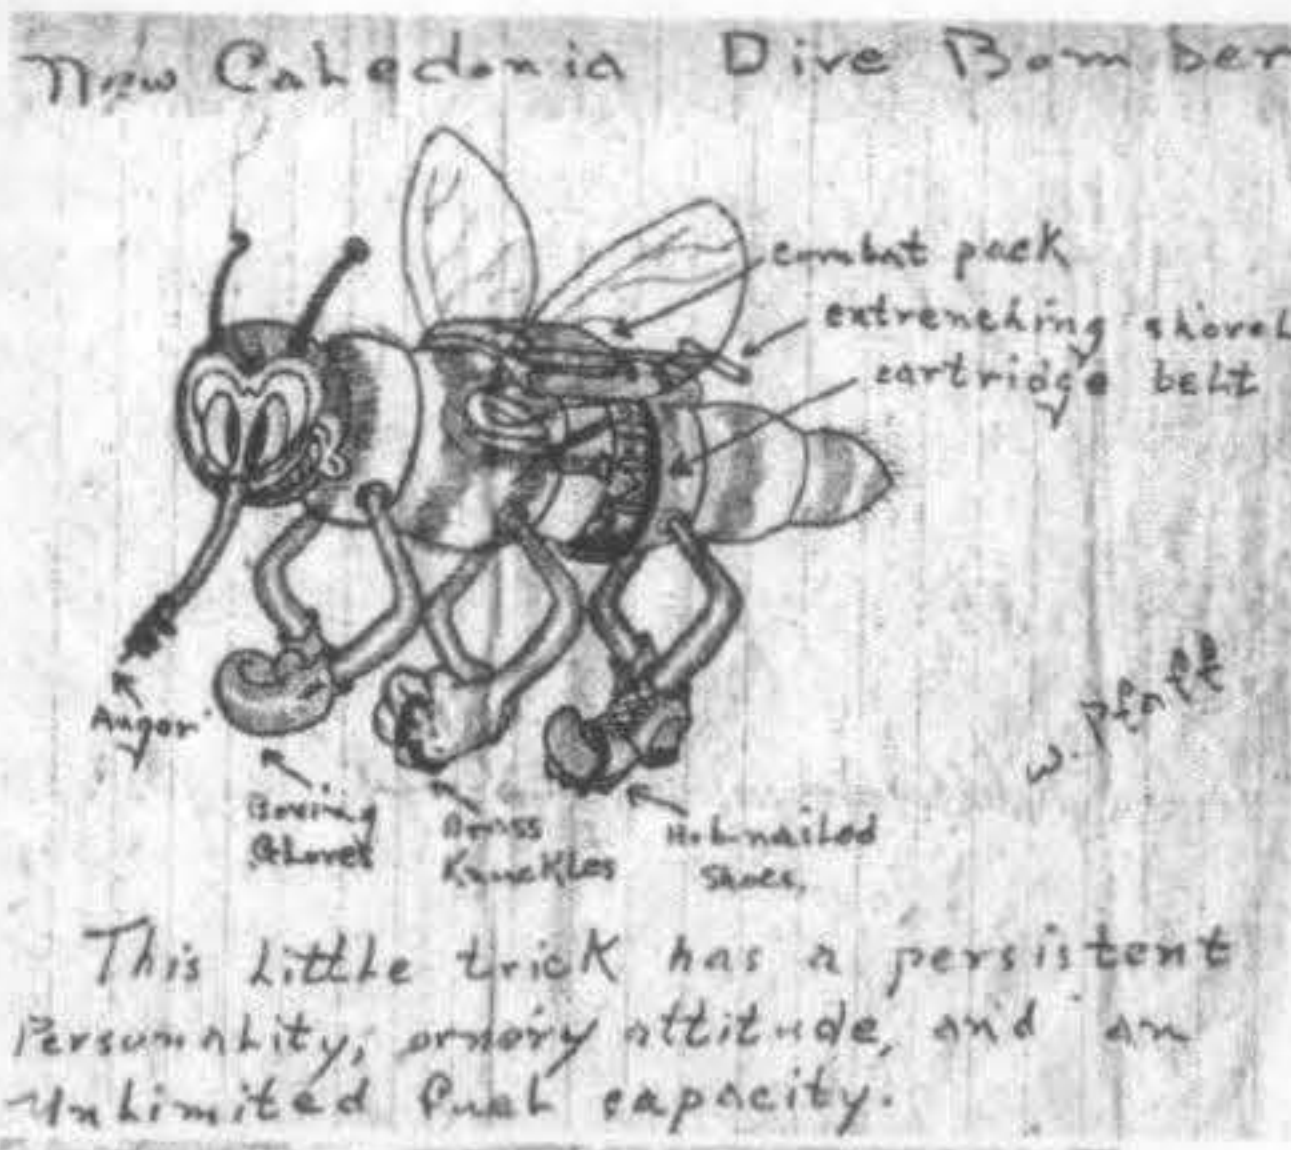 New Caledonia Dive Bomber
combat pack
extrenching shovel
cartridge belt
Augor
Boxing
Gloves
Brass
Knuckles
Hobnailed
Shoes,
w. pfaff
This little trick has a persistent
Personality, ornory attitude, and an
unlimited fuel capacity.